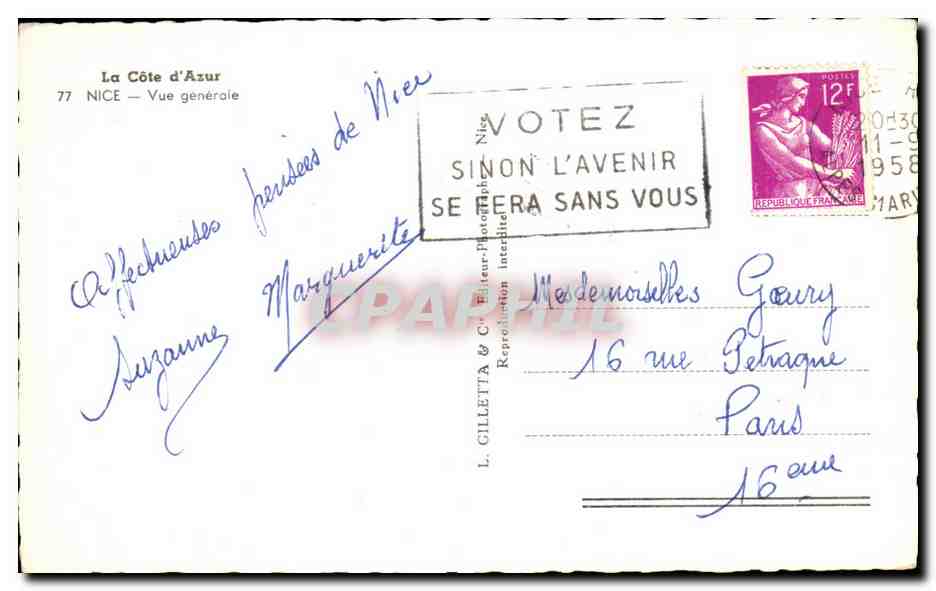 La Côte d'Azur
77 NICE — Vue générale
Affectueuses pensées de Nice
Suzanne Marguerite
VOTEZ
SINON L'AVENIR
SE FERA SANS VOUS
POSTES
12F
REPUBLIQUE FRANÇAISE
20H30
11-9
1958
L. GILLETTA & Cie Editeur-Photographe Nice
Reproduction interdite
CPAPHIL
Mesdemoiselles Goury
16 rue Petraque
Paris
16eme